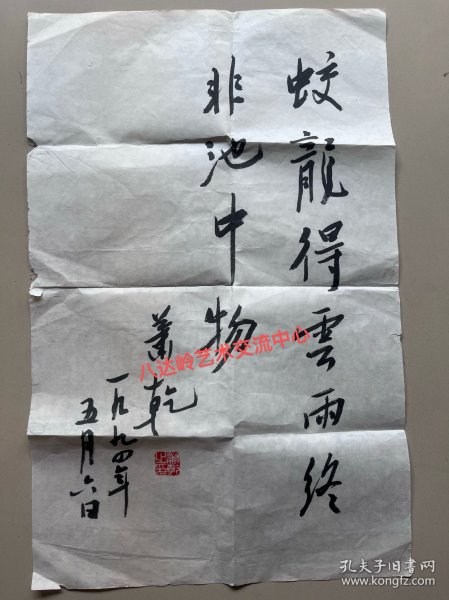 蛟龍得雲雨终
非池中物
萧乾
一九九四年
五月六日
八达岭艺术交流中心
孔夫子旧书网
www.kongfz.com